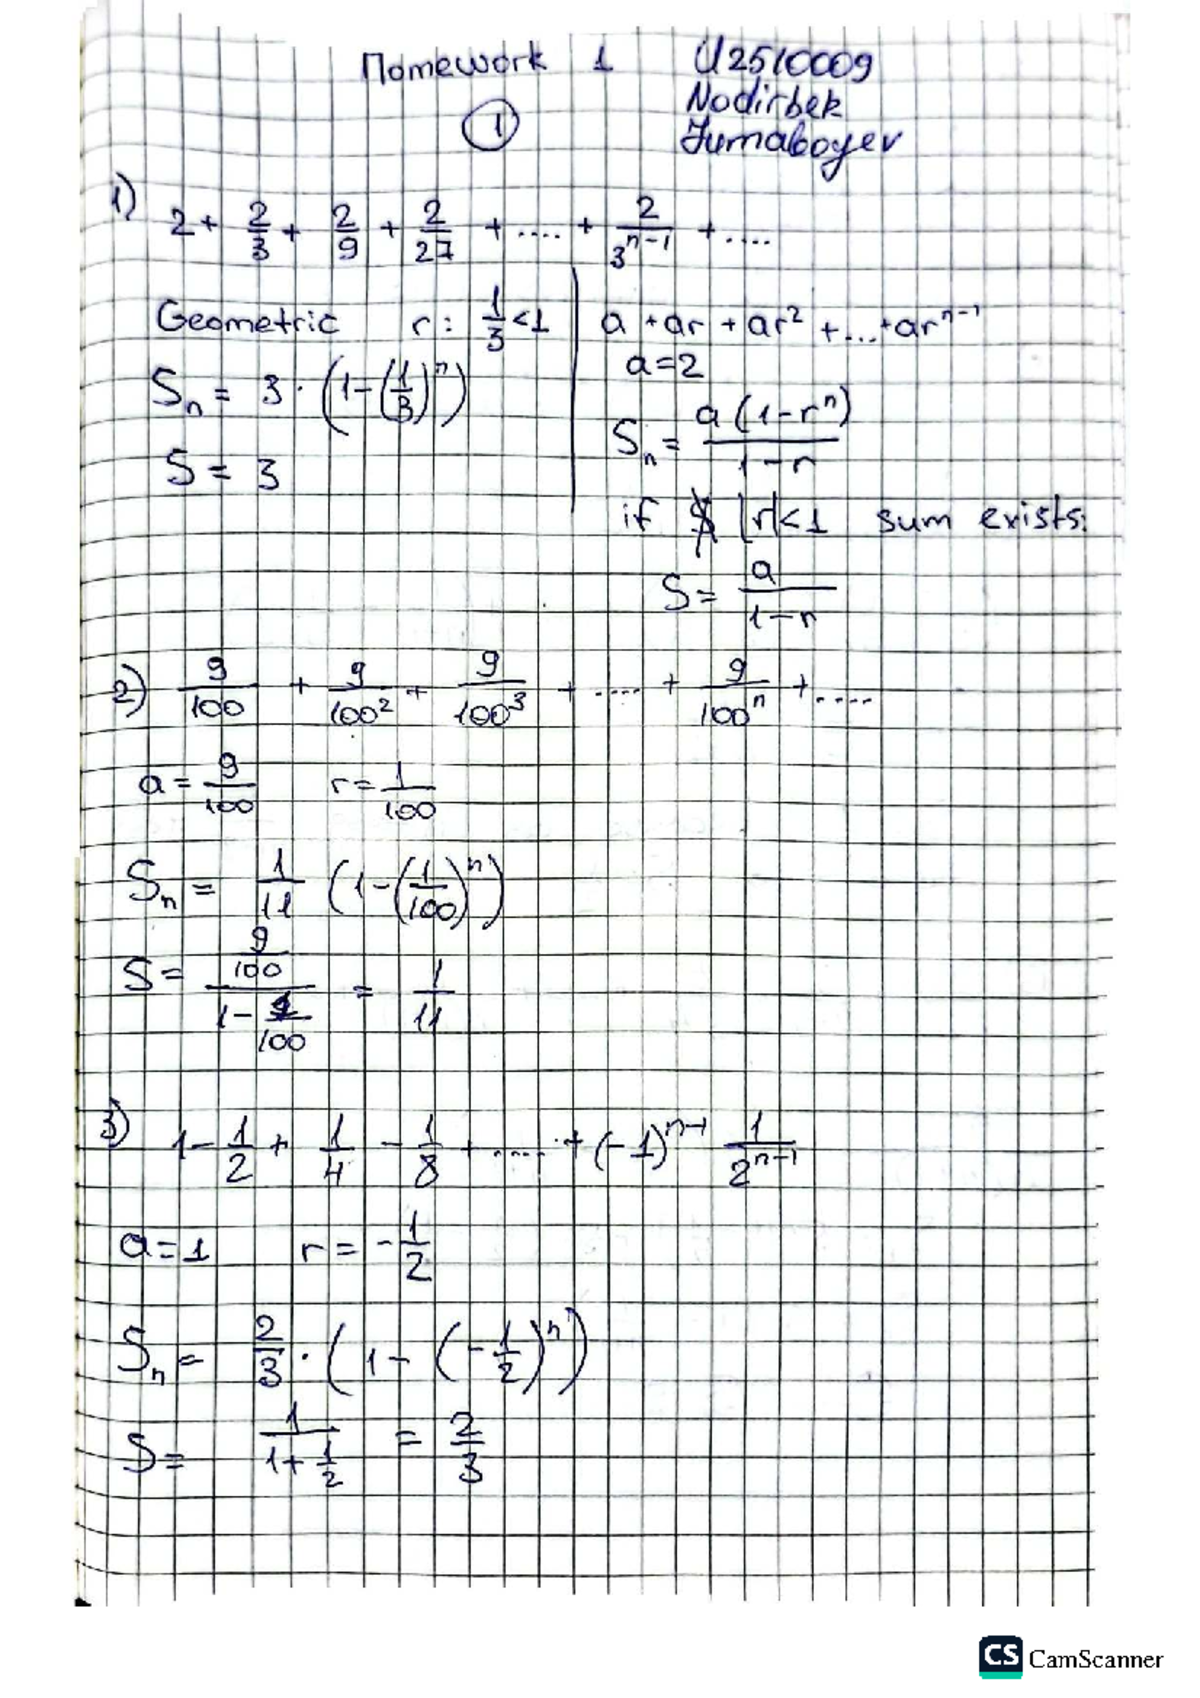 Homework 1 U2510009
Nodirbek
Jumaboyev
1
1) 2 + 2/3 + 2/9 + 2/27 + .... + 2/3^(n-1) + ....
Geometric r: 1/3 < 1
S_n = 3 · (1 - (1/3)^n)
S = 3
a + ar + ar² + ... + ar^(n-1)
a = 2
S_n = a(1 - r^n) / (1 - r)
if |r| < 1 sum exists:
S = a / (1 - r)
2) 9/100 + 9/100² + 9/100³ + .... + 9/100^n + ....
a = 9/100 r = 1/100
S_n = 1/11 (1 - (1/100)^n)
S = (9/100) / (1 - 1/100) = 1/11
3) 1 - 1/2 + 1/4 - 1/8 + ..... + (-1)^(n-1) 1/2^(n-1)
a = 1 r = -1/2
S_n = 2/3 · (1 - (-1/2)^n)
S = 1 / (1 + 1/2) = 2/3
CS CamScanner